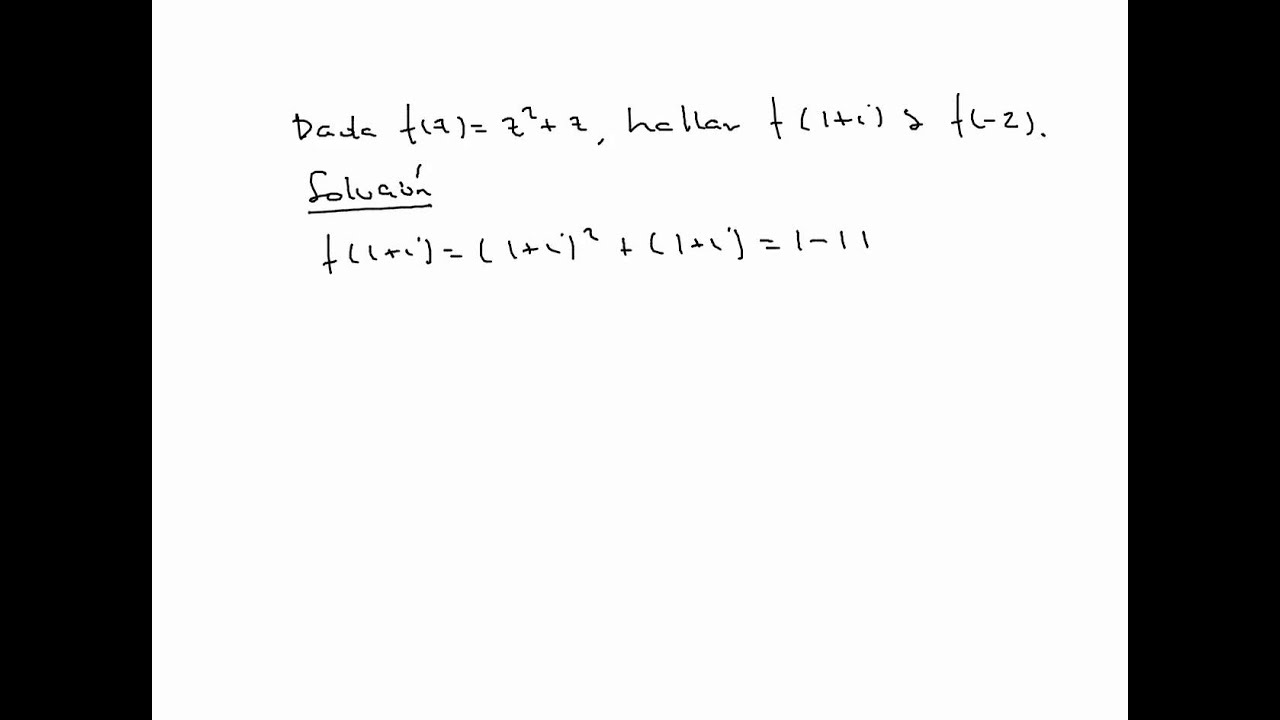 Dada f(z) = z² + z, hallar f(1+i) y f(-2).
Solución
f(1+i) = (1+i)² + (1+i) = 1 - 1 1